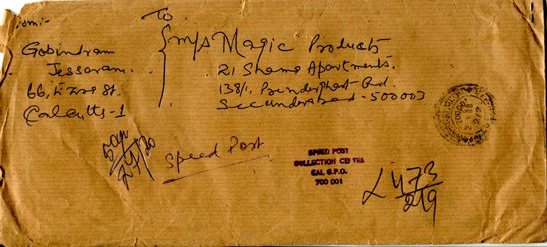 From:-
Gobindram
Jessaram.
66, Ezra St.
Calcutta-1
To
M/s Magic Products
21 Shama Apartments.
138/1, Penderghast Rd.
Secunderabad - 500003
Speed Post
SPEED POST
COLLECTION CENTRE
CAL G.P.O.
700 001
L 473
2/9